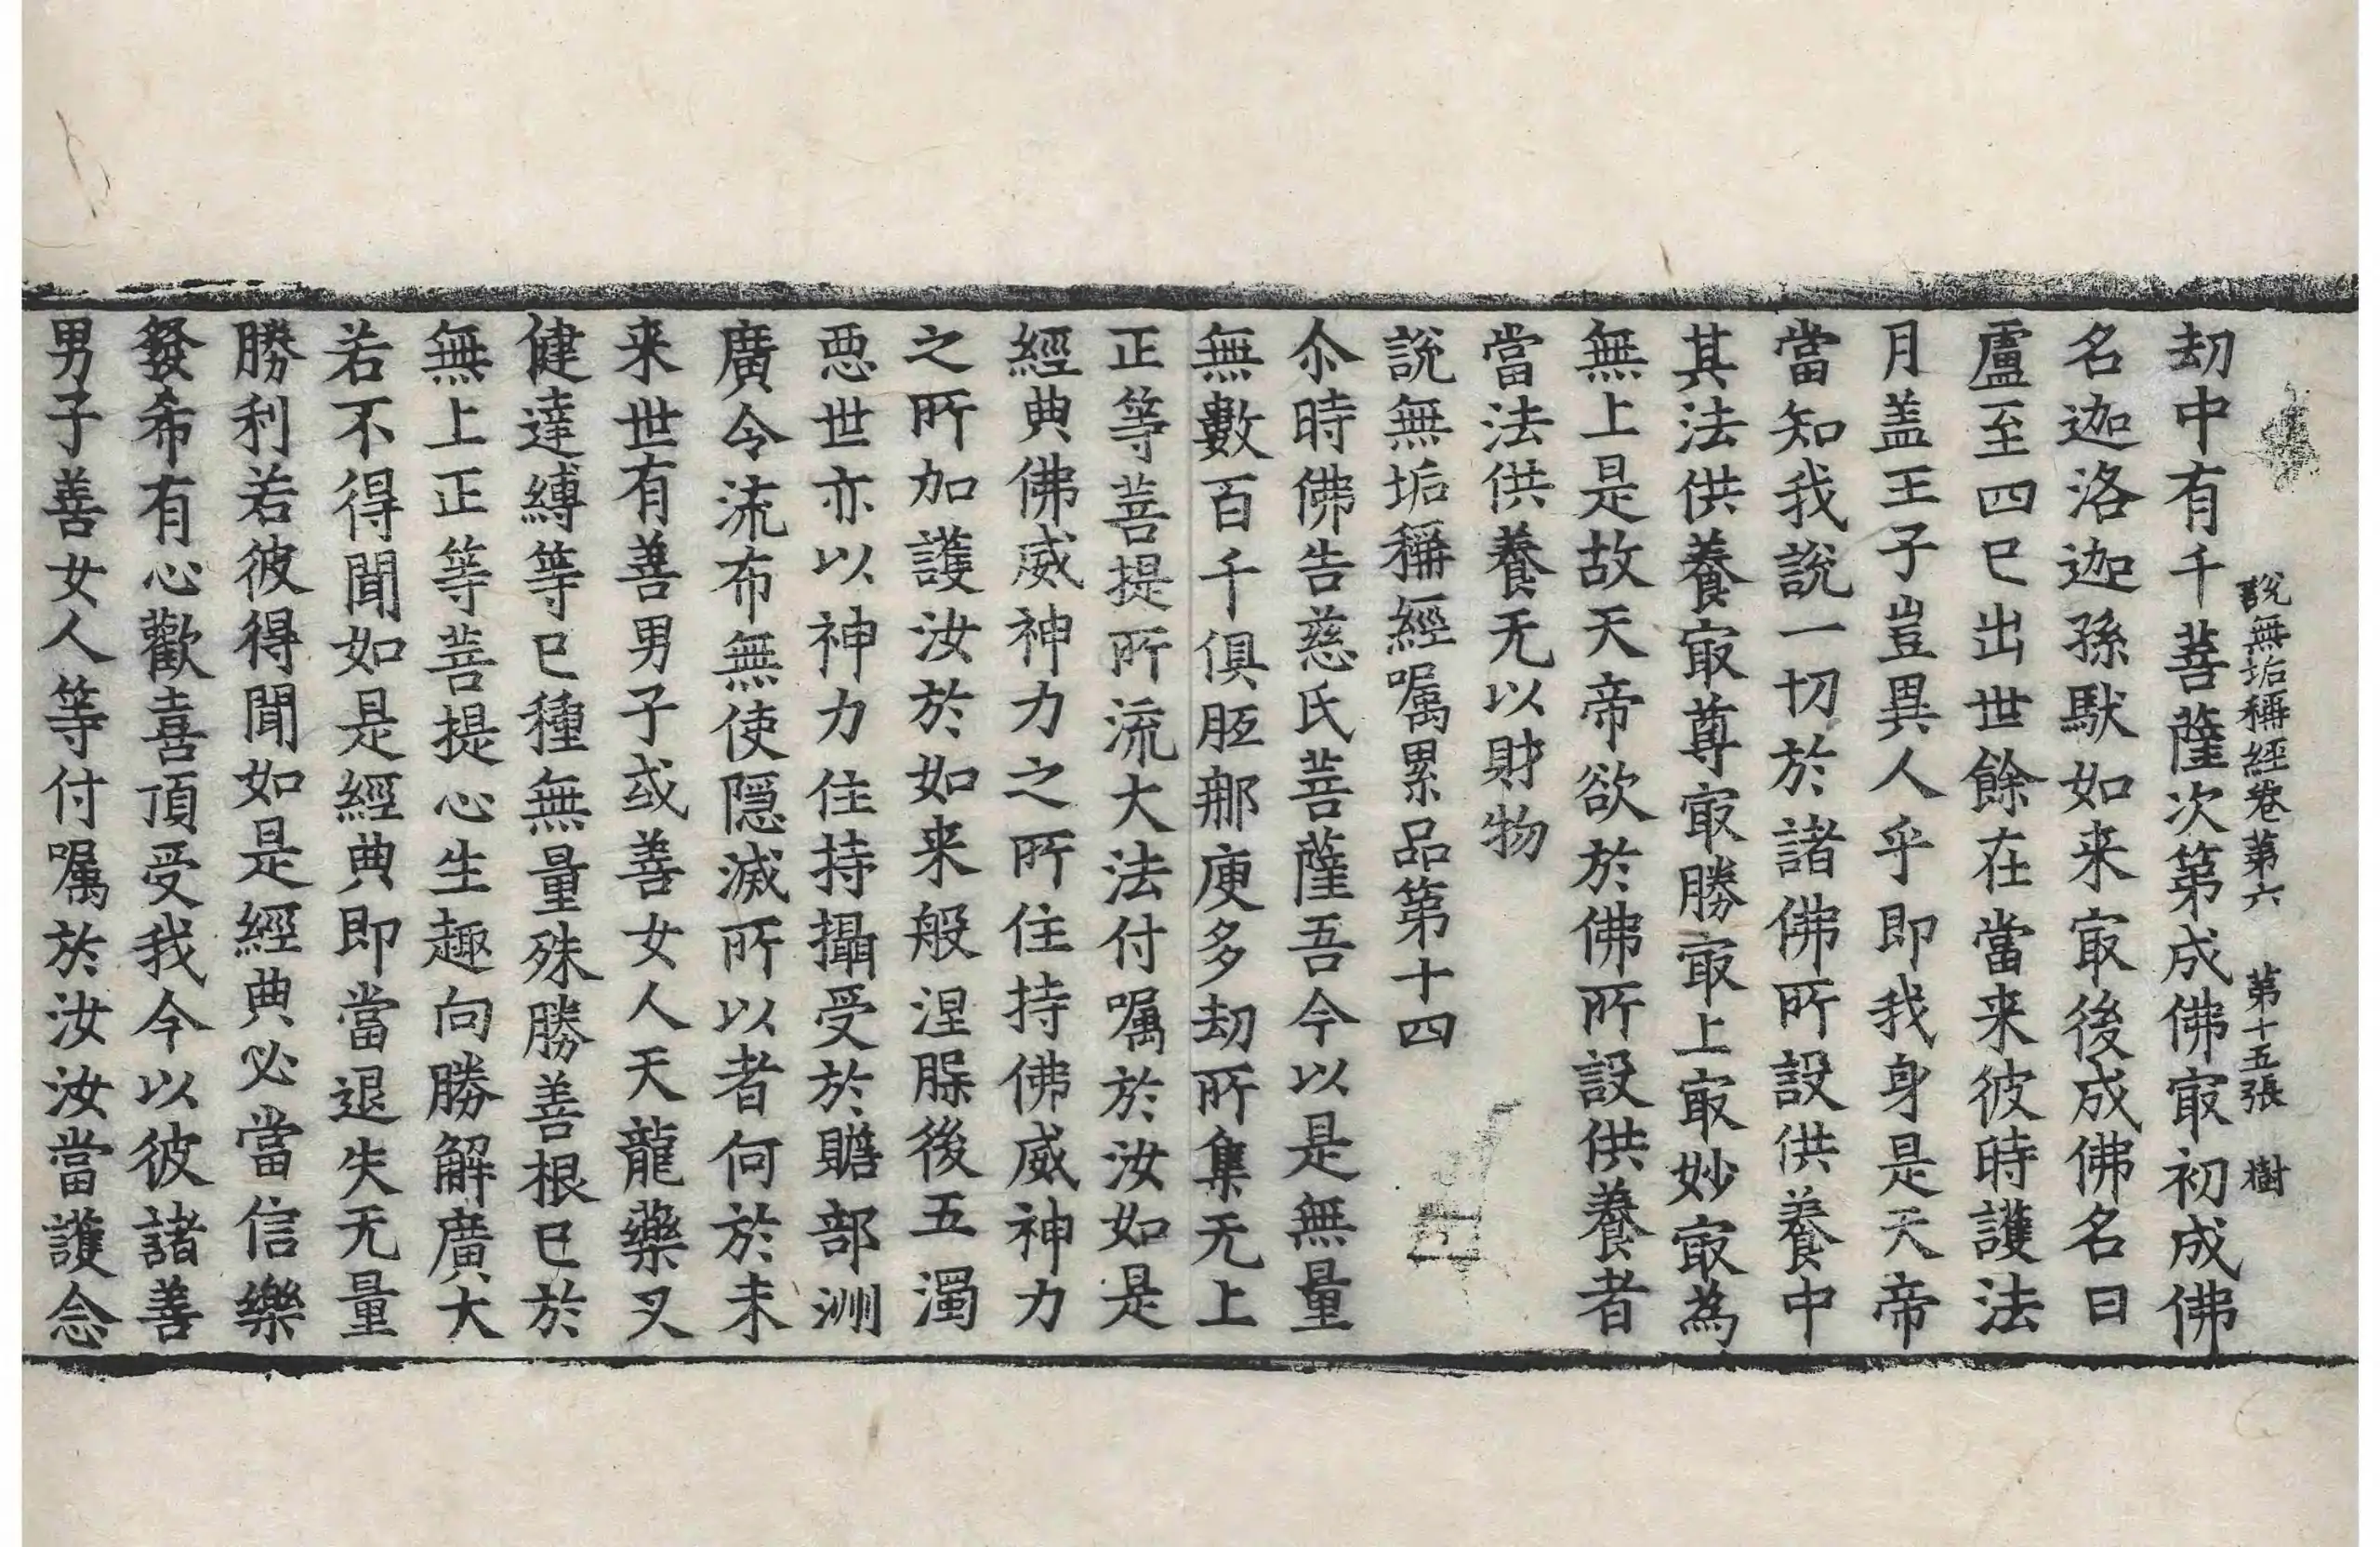 說無垢稱經卷第六　第十五張　樹
劫中有千菩薩次第成佛㝡初成佛
名迦洛迦孫馱如来㝡後成佛名曰
盧至四已出世餘在當来彼時護法
月盖王子豈異人乎即我身是天帝
當知我說一切於諸佛所設供養中
其法供養㝡尊㝡勝㝡上㝡妙㝡為
無上是故天帝欲於佛所設供養者
當法供養无以財物
說無垢稱經囑累品第十四
尒時佛告慈氏菩薩吾今以是無量
無數百千俱胝那庾多劫所集无上
正等菩提所流大法付囑於汝如是
經典佛威神力之所住持佛威神力
之所加護汝於如来般涅脲後五濁
惡世亦以神力住持攝受於贍部洲
廣令流布無使隱滅所以者何於未
来世有善男子或善女人天龍藥叉
健達縛等已種無量殊勝善根已於
無上正等菩提心生趣向勝解廣大
若不得聞如是經典即當退失无量
勝利若彼得聞如是經典必當信樂
發希有心歡喜頂受我今以彼諸善
男子善女人等付囑於汝汝當護念